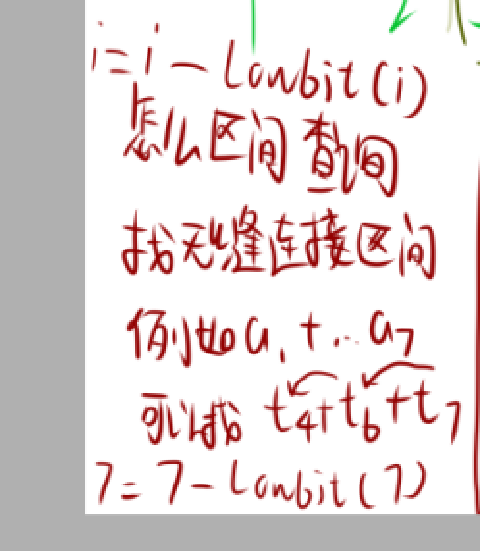 i=i-Lowbit(i)
怎么区间查询
找无缝连接区间
例如a₁+...a₇
可以找 t₄+t₆+t₇
7=7-Lowbit(7)